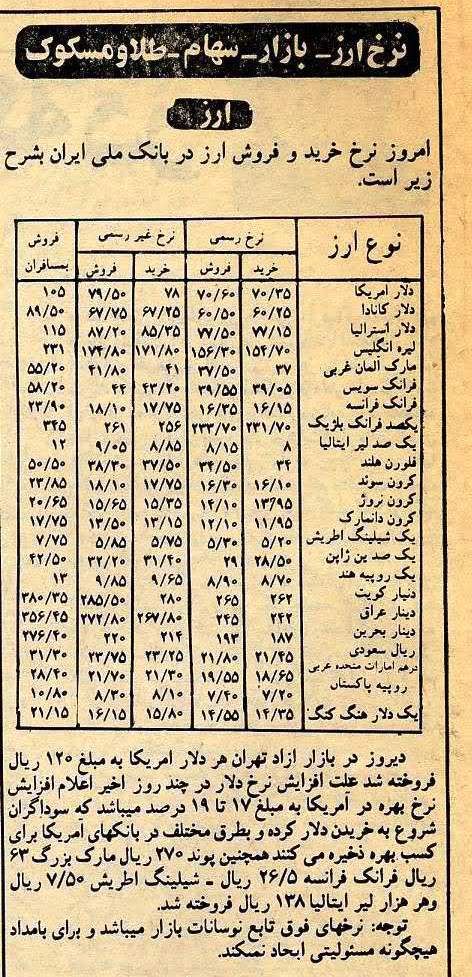 نرخ ارز - بازار - سهام - طلا و مسکوک
ارز
امروز نرخ خرید و فروش ارز در بانک ملی ایران بشرح
زیر است.
نوع ارز نرخ رسمی نرخ غیر رسمی فروش بمسافران
خرید فروش خرید فروش
دلار امریکا ۷۰/۳۵ ۷۰/۶۰ ۷۸ ۷۹/۵۰ ۱۰۵
دلار کانادا ۶۰/۲۵ ۶۰/۵۰ ۶۷/۲۵ ۶۷/۷۵ ۸۹/۵۰
دلار استرالیا ۷۷/۱۵ ۷۷/۵۰ ۸۵/۳۵ ۸۷/۲۰ ۱۱۵
لیره انگلیس ۱۵۴/۷۰ ۱۵۶/۳۰ ۱۷۱/۸۰ ۱۷۴/۸۰ ۲۳۱
مارک المان غربی ۳۷ ۳۷/۵۰ ۴۱ ۴۱/۸۰ ۵۵/۲۰
فرانک سویس ۳۹/۰۵ ۳۹/۵۵ ۴۳/۲۰ ۴۴ ۵۸/۲۰
فرانک فرانسه ۱۶/۱۵ ۱۶/۳۵ ۱۷/۷۵ ۱۸/۱۰ ۲۳/۹۰
یکصد فرانک بلژیک ۲۳۱/۷۰ ۲۳۳/۷۰ ۲۵۶ ۲۶۱ ۳۴۵
یک صد لیر ایتالیا ۸ ۸/۱۵ ۸/۸۵ ۹/۰۵ ۱۲
فلورن هلند ۳۴ ۳۴/۵۰ ۳۷/۵۰ ۳۸/۳۰ ۵۰/۵۰
کرون سوئد ۱۶/۱۰ ۱۶/۳۰ ۱۷/۷۵ ۱۸/۱۰ ۲۳/۸۵
کرون نروژ ۱۳/۹۵ ۱۴/۱۰ ۱۵/۳۵ ۱۵/۶۵ ۲۰/۶۵
کرون دانمارک ۱۱/۹۵ ۱۲/۱۰ ۱۳/۱۵ ۱۳/۵۰ ۱۷/۷۵
یک شیلینگ اطریش ۵/۲۰ ۵/۳۰ ۵/۷۵ ۵/۸۵ ۷/۷۵
یک صد ین ژاپن ۲۸/۵۰ ۲۹ ۳۱/۴۰ ۳۲/۲۰ ۴۲/۵۰
یک روپیه هند ۸/۷۰ ۸/۹۰ ۹/۶۵ ۹/۸۵ ۱۳
دنیار کویت ۲۶۲ ۲۶۵ ۲۸۰ ۲۸۵/۵۰ ۳۸۰/۳۵
دینار عراق ۲۴۲ ۲۴۵ ۲۶۷/۸۰ ۲۷۲/۸۰ ۳۵۶/۴۵
دینار بحرین ۱۸۷ ۱۹۳ ۲۱۴ ۲۲۰ ۲۷۶/۴۰
ریال سعودی ۲۱/۴۵ ۲۱/۸۰ ۲۳/۲۵ ۲۳/۷۵ ۳۱/۳۰
درهم امارات متحده عربی ۱۸/۶۵ ۱۹/۵۵ ۲۱/۳۰ ۲۱/۷۰ ۲۸/۴۰
روپیه پاکستان ۷/۲۰ ۷/۴۰ ۸/۱۰ ۸/۳۰ ۱۰/۸۰
یک دلار هنگ کنگ ۱۴/۳۵ ۱۴/۵۵ ۱۵/۸۰ ۱۶/۱۵ ۲۱/۱۵
دیروز در بازار ازاد تهران هر دلار امریکا به مبلغ ۱۲۰ ریال
فروخته شد علت افزایش نرخ دلار در چند روز اخیر اعلام افزایش
نرخ بهره در آمریکا به مبلغ ۱۷ تا ۱۹ درصد میباشد که سوداگران
شروع به خریدن دلار کرده و بطرق مختلف در بانکهای آمریکا برای
کسب بهره ذخیره می کنند همچنین پوند ۲۷۰ ریال مارک بزرگ ۶۳
ریال فرانک فرانسه ۲۶/۵ ریال - شیلینگ اطریش ۷/۵۰ ریال
وهر هزار لیر ایتالیا ۱۳۸ ریال فروخته شد.
توجه: نرخهای فوق تابع نوسانات بازار میباشد و برای بامداد
هیچگونه مسئولیتی ایجاد نمیکند.